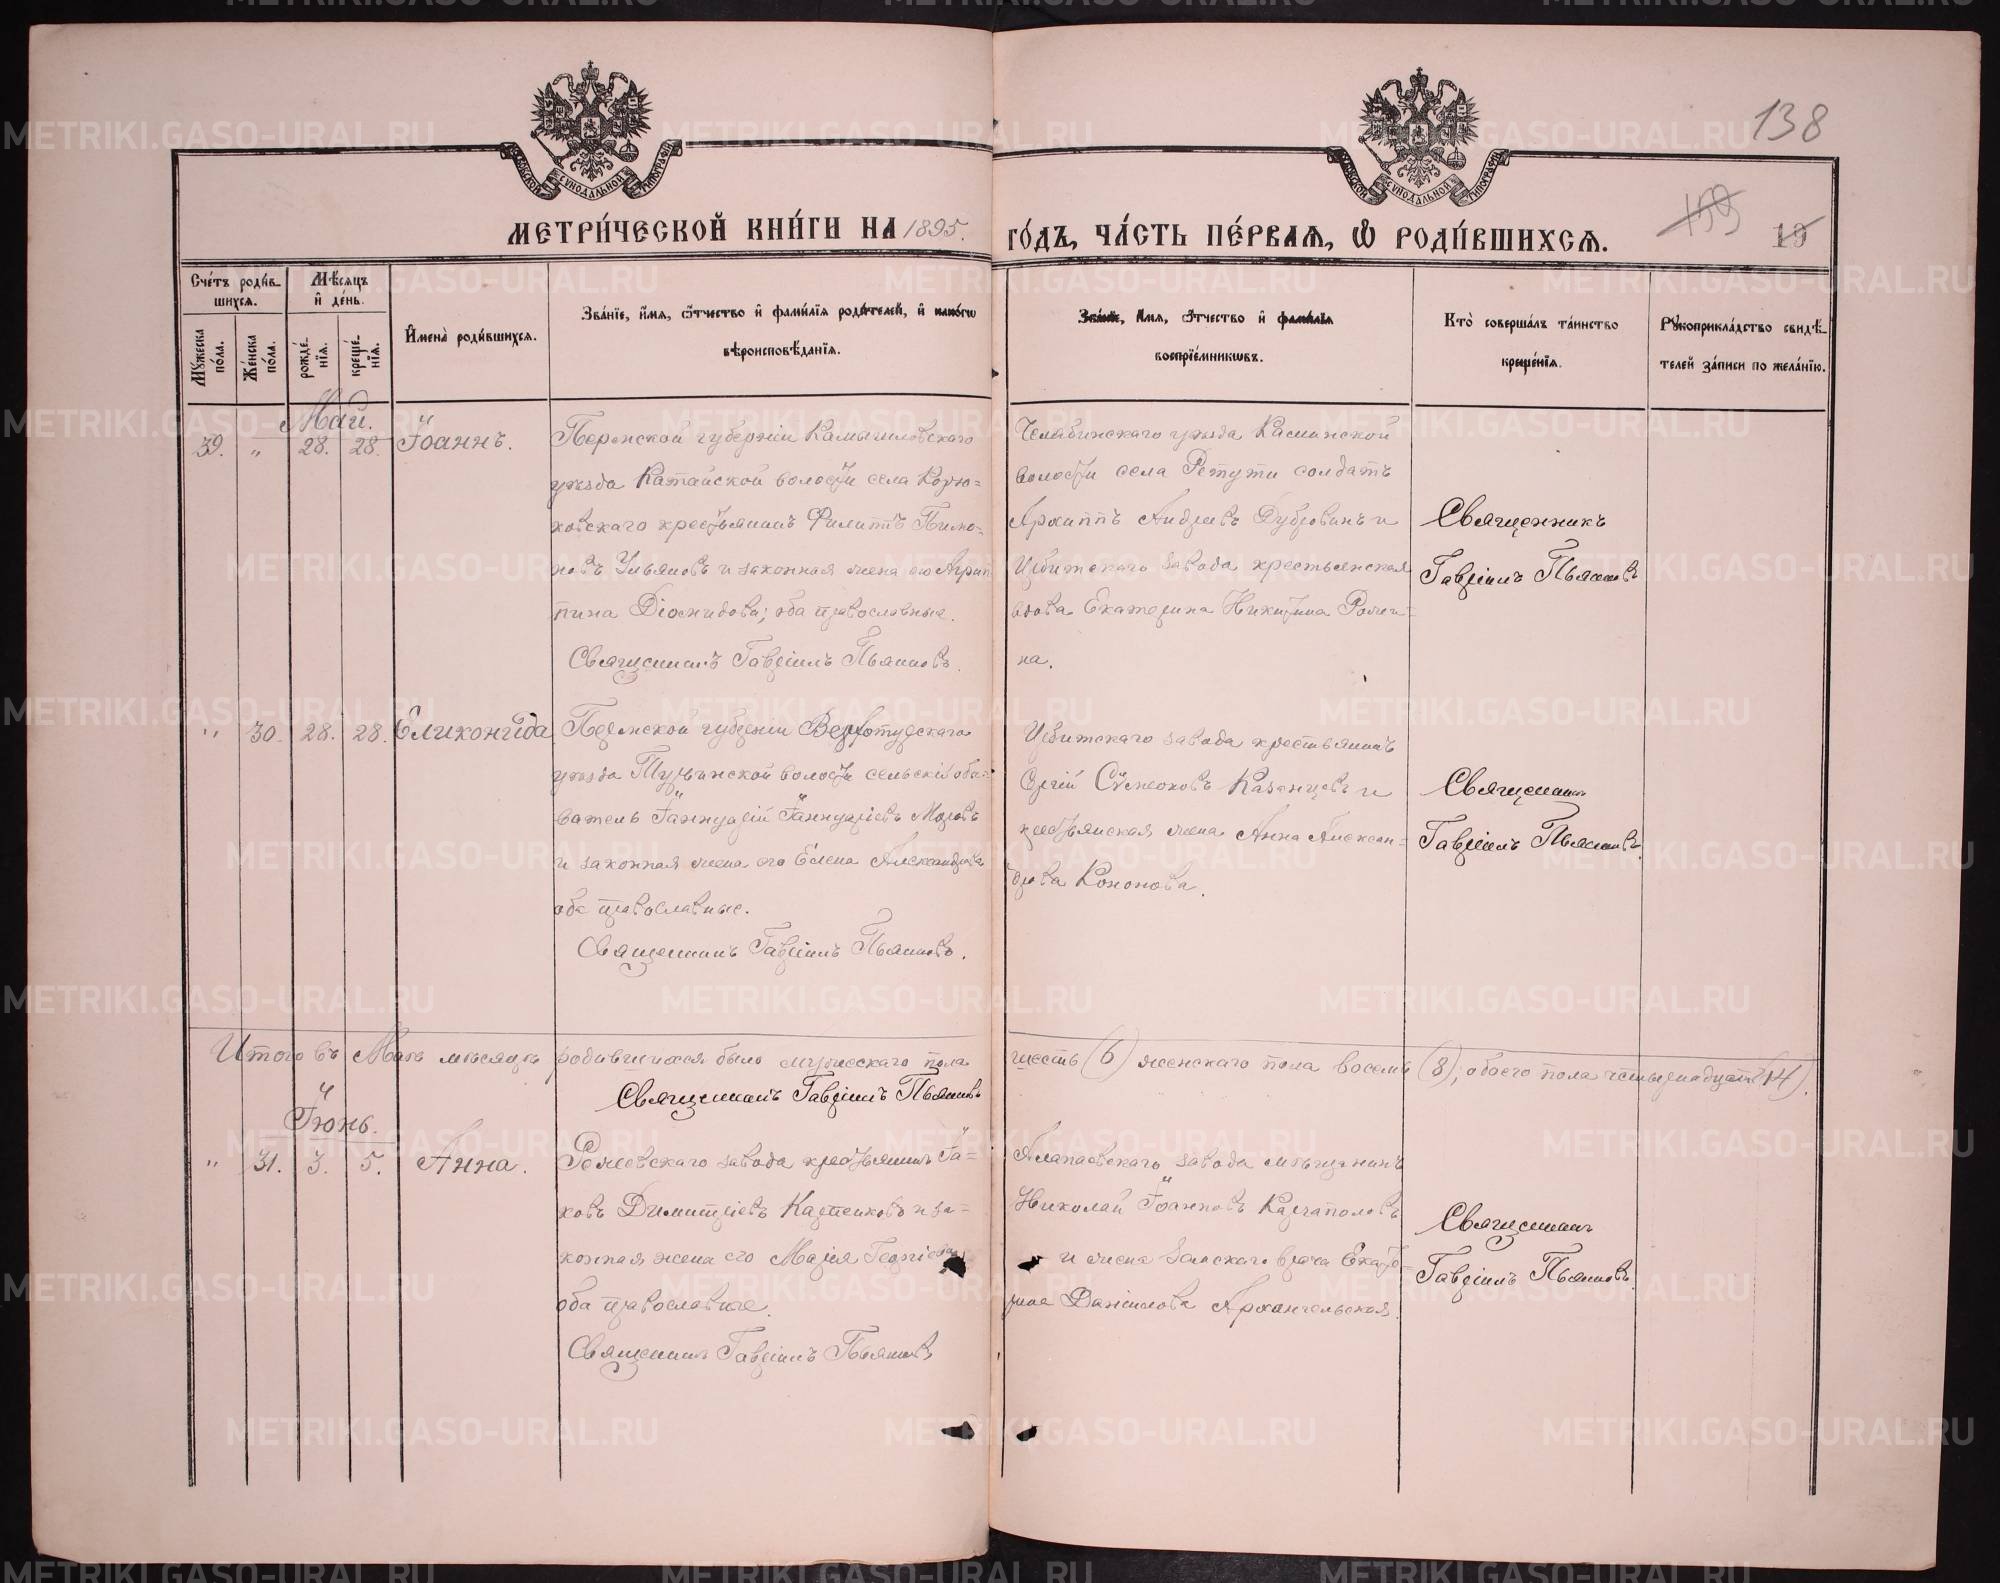 138
159
19
МЕТРИ́ЧЕСКОЙ КНИ́ГИ НА 1895.
ГО́ДЪ, ЧА́СТЬ ПЕ́РВАЯ, Ѡ РОДИ́ВШИХСЯ.
Сче́тъ роди́в-
шихся.
Му́жеска по́ла.
Же́нска по́ла.
Мѣсяцъ
и де́нь.
рожде́нїя.
креще́нїя.
Имена̀ роди́вшихся.
Зва́нїе, и́мя, ѻ́тчество и фами́лїя роди́телей, и како́гѡ
вѣроисповѣ́данїя.
Зва́нїе, и́мя, ѻ́тчество и фами́лїя
воспрїе́мникѡвъ.
Кто̀ соверша́лъ та́инство
креще́нїя.
Рꙋкоприкла́дство свидѣ́-
телей за́писи по жела́нїю.
Май.
39. „ 28. 28. Іоаннъ.
Пермской губерніи Камышловскаго
уѣзда Катайской волости села Корю=
ковскаго крестьянинъ Филиппъ Пимо=
новъ Ульяновъ и законная жена его Агрип
пина Діомидова; оба православные.
Священникъ Гавріилъ Пьянковъ.
Челябинскаго уѣзда
волости села солдатъ
Архиппъ Андреевъ Дубровинъ и
Ирбитскаго завода крестьянская
вдова Екатерина Никитина
на.
Священникъ
Гавріилъ Пьянковъ
„ 30. 28. 28. Еликонида
Пермской губерніи Верхотурскаго
уѣзда Турьинской волости сельскій обы=
ватель Іаннуарій Іаннуаріевъ
и законная жена его Елена Александрова
оба православные.
Священникъ Гавріилъ Пьянковъ.
Ирбитскаго завода крестьянинъ
Сергій Сѵмеоновъ Казанцевъ и
крестьянская жена Анна Алексан=
дрова Кононова.
Священникъ
Гавріилъ Пьянковъ.
Итого въ Маѣ мѣсяцѣ родившихся было мужескаго пола шесть (6) женскаго пола восемь (8), обоего пола четырнадцать (14).
Священникъ Гавріилъ Пьянковъ
Іюнь.
„ 31. 3. 5. Анна.
Режевскаго завода крестьянинъ Іа=
ковъ Димитріевъ и за=
конная жена его Марія Георгіева
оба православные.
Священникъ Гавріилъ Пьянковъ
Алапаевскаго завода мѣщанинъ
Николай Іоанновъ Каргаполовъ
и жена Земскаго врача Екате=
рина Данилова Архангельская.
Священникъ
Гавріилъ Пьянковъ.
METRIKI.GASO-URAL.RU